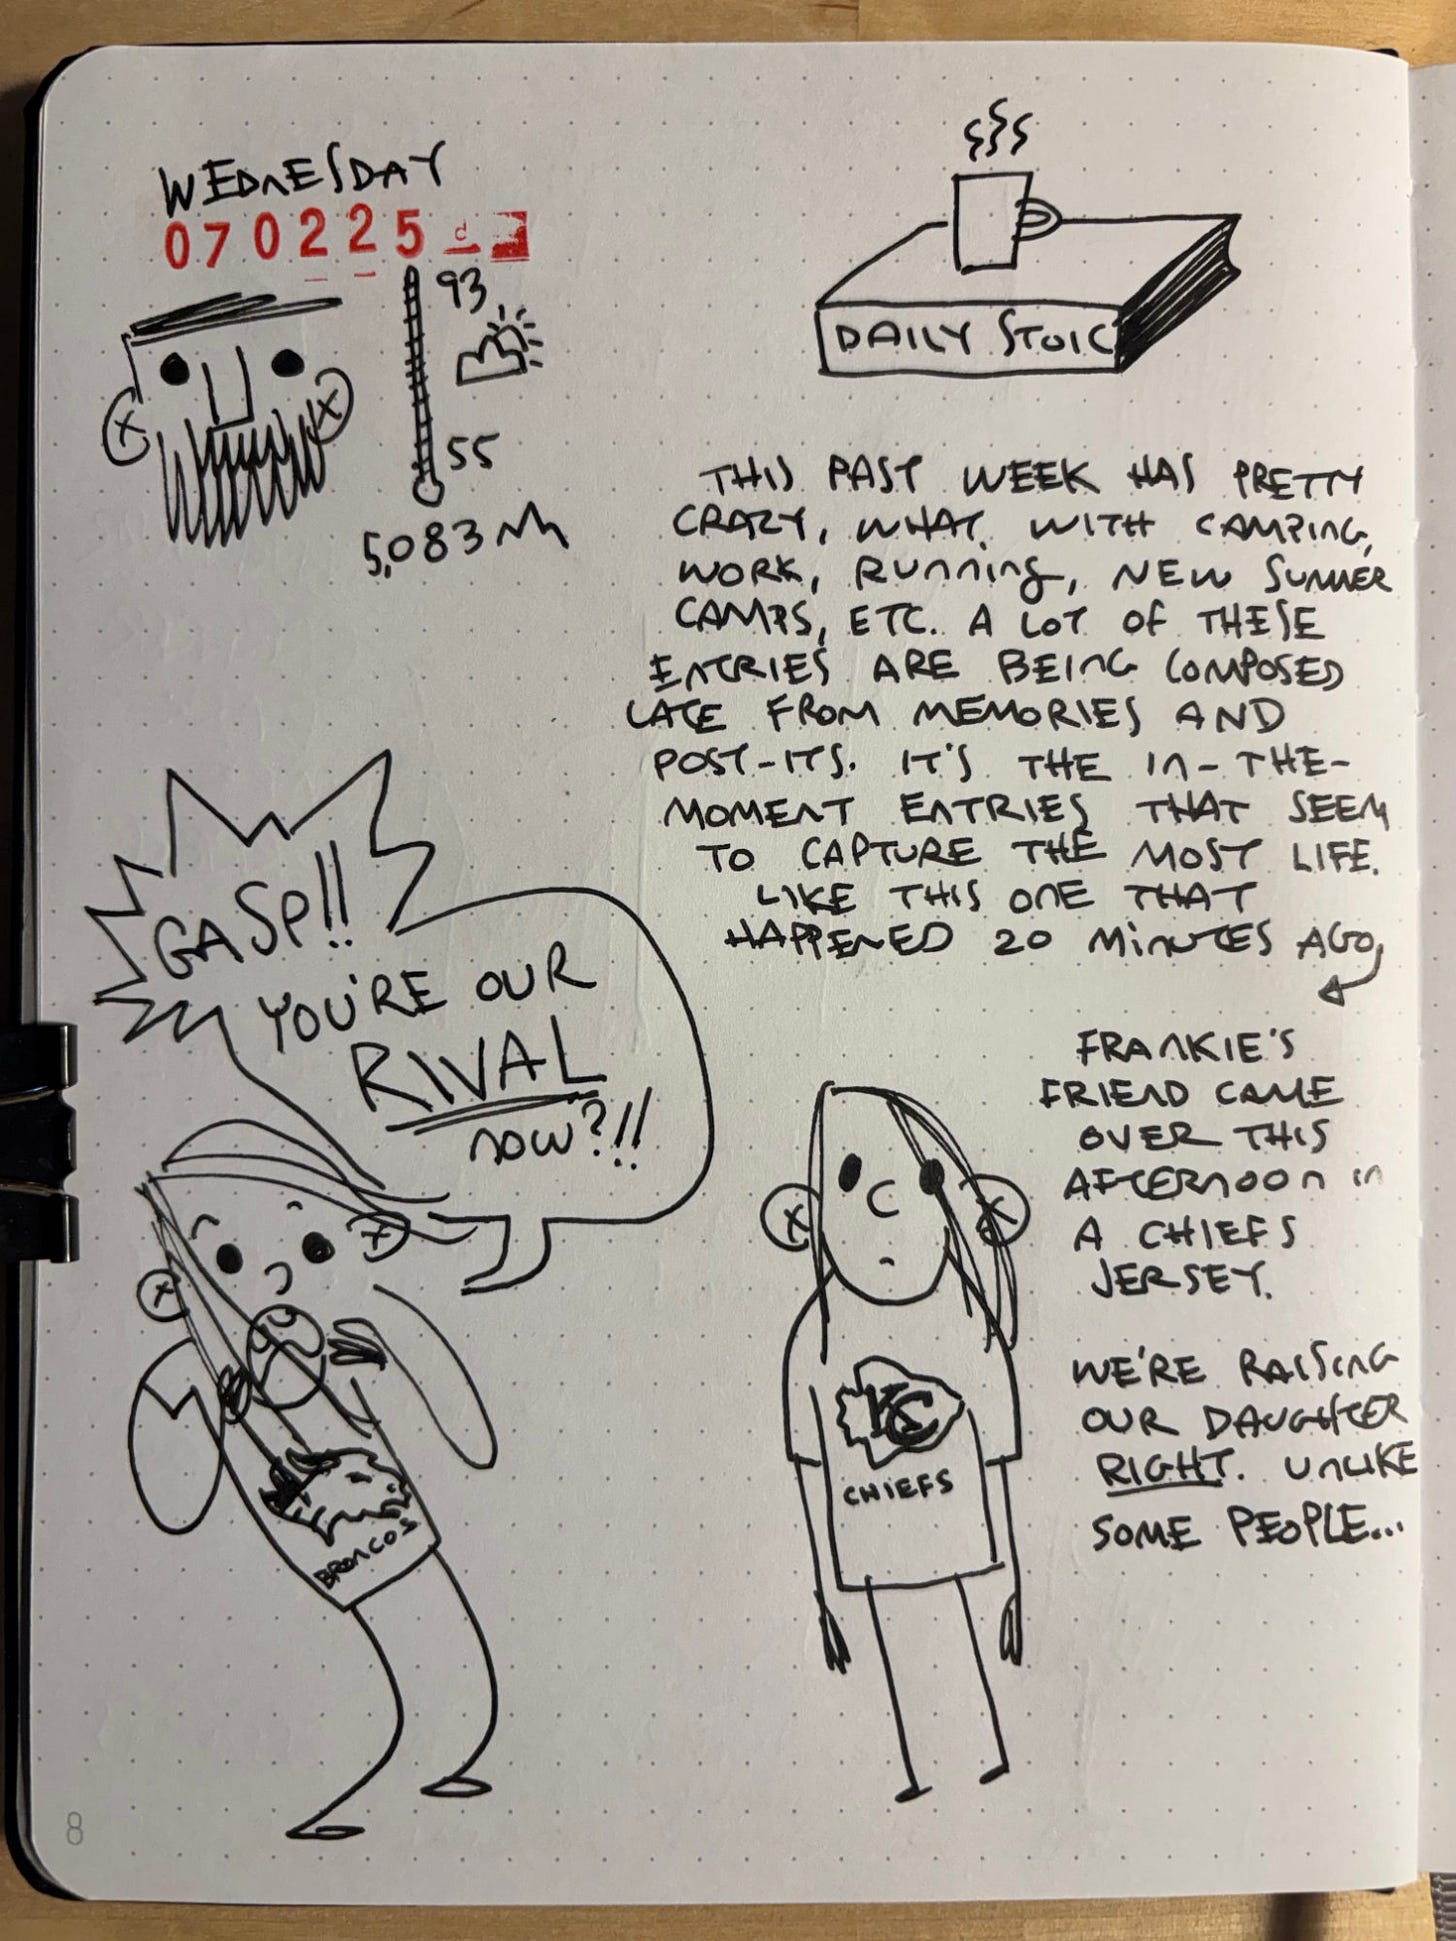 WEDNESDAY
070225
93
55
5,083
DAILY STOIC
THIS PAST WEEK HAS PRETTY
CRAZY, WHAT WITH CAMPING,
WORK, RUNNING, NEW SUMMER
CAMPS, ETC. A LOT OF THESE
ENTRIES ARE BEING COMPOSED
LATE FROM MEMORIES AND
POST-ITS. IT'S THE IN-THE-
MOMENT ENTRIES THAT SEEM
TO CAPTURE THE MOST LIFE.
LIKE THIS ONE THAT
HAPPENED 20 MINUTES AGO,
GASP!!
YOU'RE OUR
RIVAL
NOW?!!
BRONCOS
KC
CHIEFS
FRANKIE'S
FRIEND CAME
OVER THIS
AFTERNOON IN
A CHIEFS
JERSEY.
WE'RE RAISING
OUR DAUGHTER
RIGHT. UNLIKE
SOME PEOPLE...
8